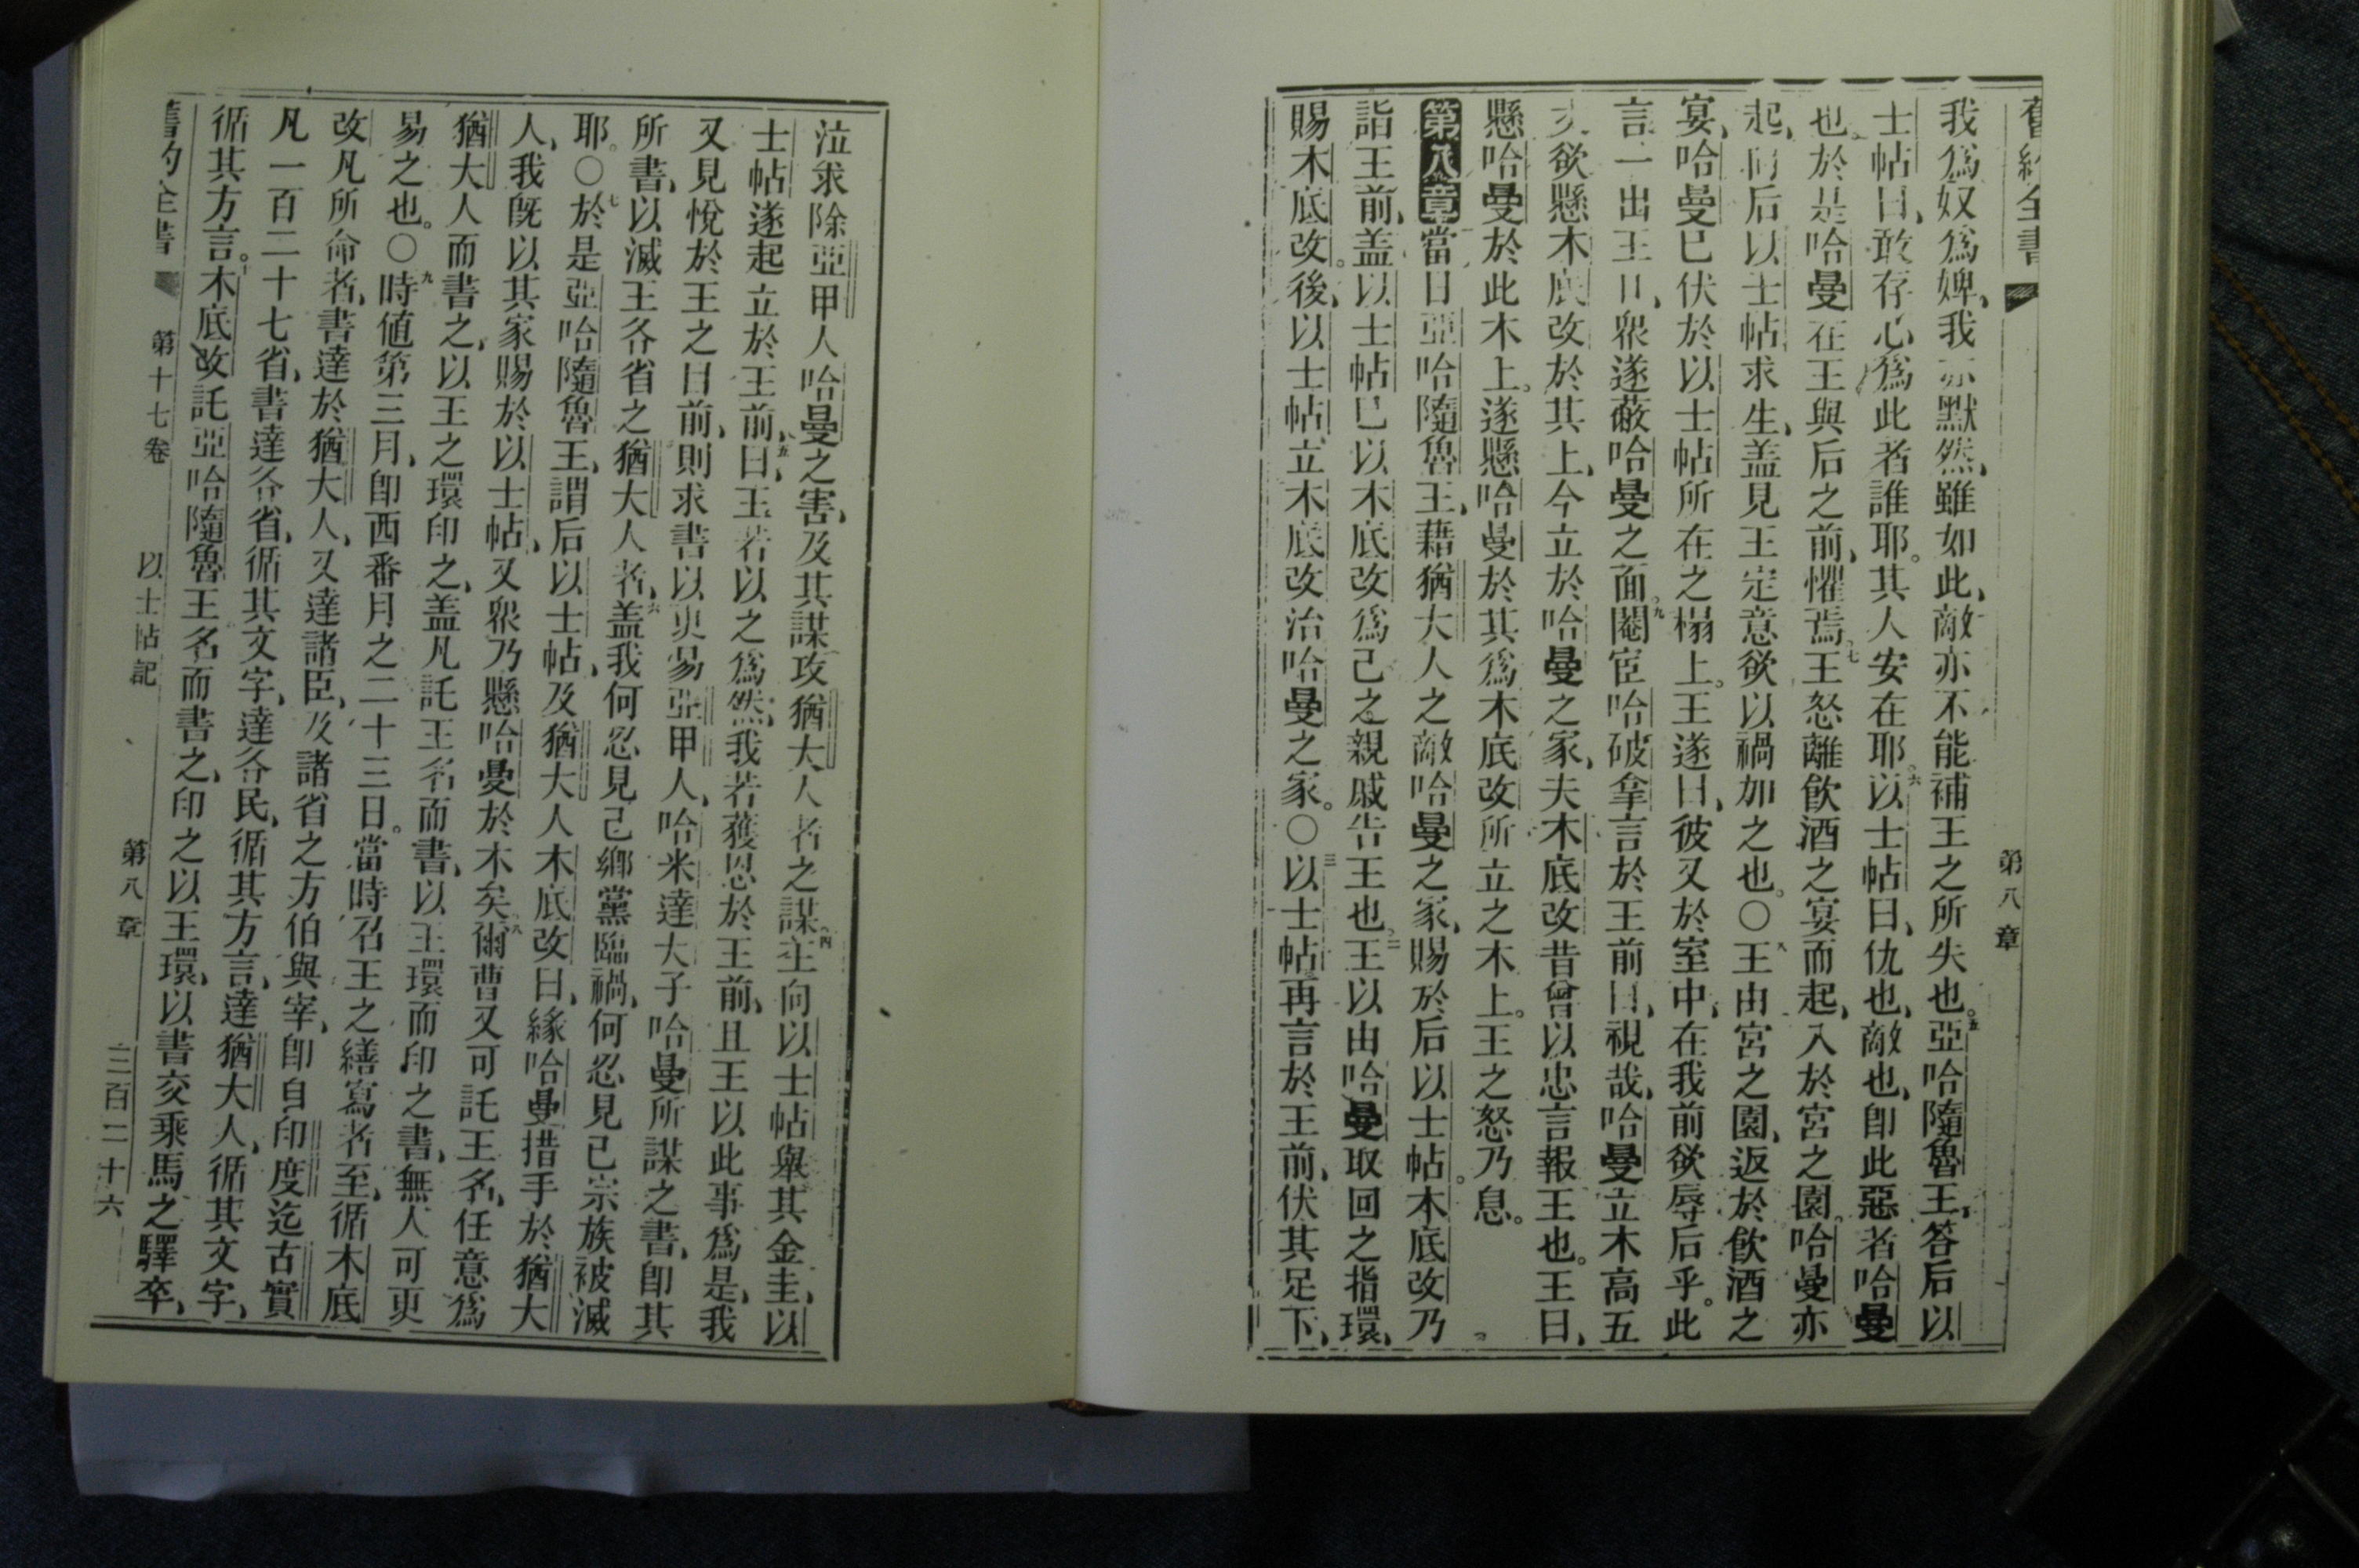 舊約全書 第八章
我爲奴爲婢、我亦默然、雖如此、敵亦不能補王之所失也。五亞哈隨魯王、答后以
士帖曰、敢存心爲此者誰耶。其人安在耶。六以士帖曰、仇也、敵也、卽此惡者哈曼
也。於是哈曼在王與后之前、懼焉。七王怒離飮酒之宴而起、入於宮之園。哈曼亦
起、向后以士帖求生、盖見王定意欲以禍加之也。〇八王由宮之園、返於飮酒之
宴、哈曼已伏於以士帖所在之榻上。王遂曰、彼又於室中、在我前欲辱后乎。此
言一出王口、衆遂蔽哈曼之面。九閹宦哈破拿言於王前曰、視哉、哈曼立木高五
丈欲懸木底改於其上、今立於哈曼之家、夫木底改昔曾以忠言報王也。王曰、
懸哈曼於此木上。遂懸哈曼於其爲木底改所立之木上。王之怒乃息。
第八章當日亞哈隨魯王、藉猶大人之敵哈曼之家、賜於后以士帖。木底改乃
詣王前、盖以士帖已以木底改爲己之親戚告王也。二王以由哈曼取回之指環、
賜木底改。後、以士帖立木底改治哈曼之家。〇三以士帖再言於王前、伏其足下、
泣求除亞甲人哈曼之害、及其謀攻猶大人者之謀。四王向以士帖舉其金圭、以
士帖遂起立於王前、五曰、王若以之爲然、我若獲恩於王前、且王以此事爲是、我
又見悅於王之目前、則求書以更易亞甲人、哈米達大子哈曼所謀之書、卽其
所書、以滅王各省之猶大人者、六盖我何忍見己鄉黨臨禍、何忍見己宗族被滅
耶。〇七於是亞哈隨魯王、謂后以士帖、及猶大人木底改曰、緣哈曼措手於猶大
人、我旣以其家賜於以士帖、又衆乃懸哈曼於木矣。八爾曹又可託王名、任意爲
猶大人而書之、以王之環印之、盖凡託王名而書、以王環而印之書、無人可更
易之也。〇九時値第三月、卽西番月之二十三日。當時召王之繕寫者至、循木底
改凡所命者、書達於猶大人、又達諸臣、及諸省之方伯與宰、卽自印度迄古實
凡一百二十七省、書達各省、循其文字、達各民、循其方言、達猶大人、循其文字、
循其方言。十木底改託亞哈隨魯王名而書之、印之以王環、以書交乘馬之驛卒、
舊約全書 第十七卷 以士帖記 第八章 三百二十六